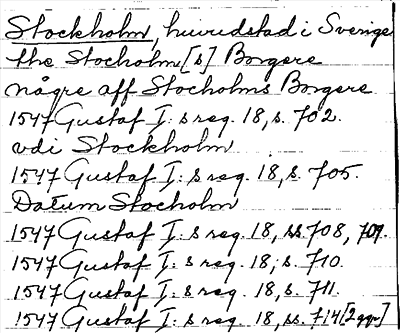 Stockholm, huvudstad i Sverige
the Stocholm[s] Borgere
någre aff Stocholms Borgere
1547 Gustaf I: s reg. 18, s. 702.
vdi Stockholm
1547 Gustaf I: s reg. 18, s. 705.
Datum Stocholm
1547 Gustaf I: s reg. 18, ss. 708, 709.
1547 Gustaf I: s reg. 18, s. 710.
1547 Gustaf I: s reg. 18, s. 711.
1547 Gustaf I: s reg. 18, ss. 714 [2 ggr]